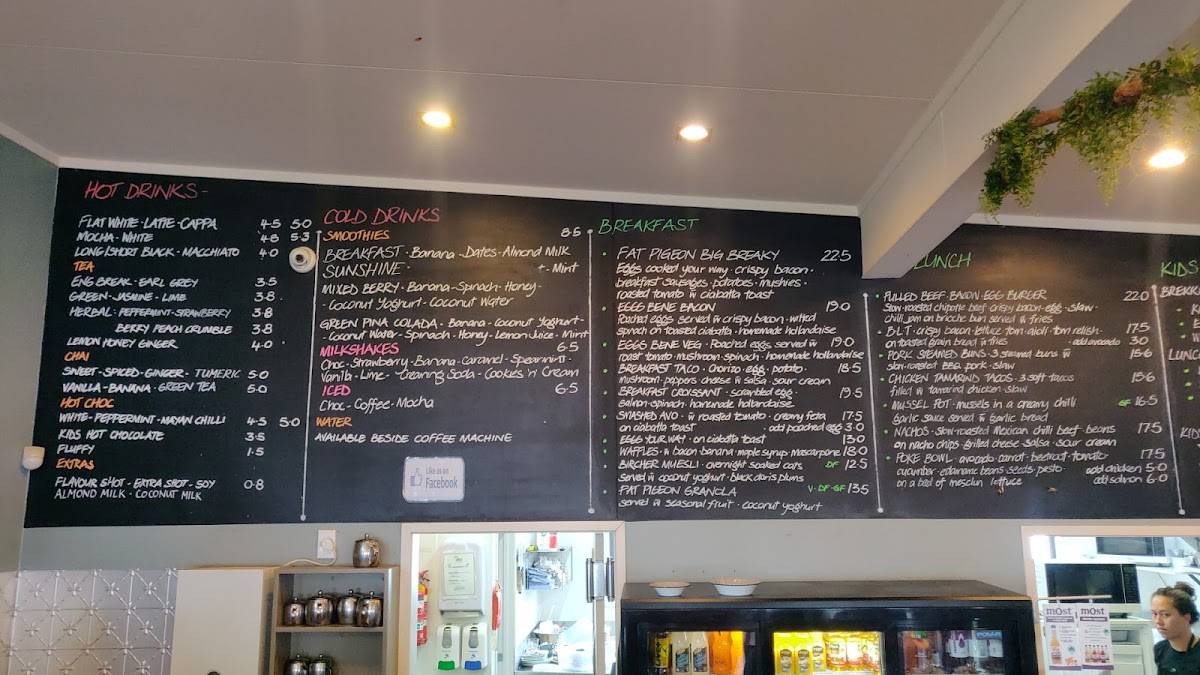 HOT DRINKS-
FLAT WHITE · LATTE · CAPPA 4·5 5·0
MOCHA · WHITE 4·8 5·3
LONG/SHORT BLACK · MACCHIATO 4·0
TEA
ENG BREAK · EARL GREY 3·5
GREEN · JASMINE · LIME 3·8
HERBAL · PEPPERMINT · STRAWBERRY 3·8
BERRY PEACH CRUMBLE 3·8
LEMON HONEY GINGER 4·0
CHAI
SWEET · SPICED · GINGER · TUMERIC 5·0
VANILLA · BANANA · GREEN TEA 5·0
HOT CHOC
WHITE · PEPPERMINT · MAYAN CHILLI 4·5 5·0
KIDS HOT CHOCOLATE 3·5
FLUFFY 1·5
EXTRAS
FLAVOUR SHOT · EXTRA SHOT · SOY 0·8
ALMOND MILK · COCONUT MILK
COLD DRINKS
SMOOTHIES 8·5
BREAKFAST · Banana · Dates · Almond Milk
SUNSHINE · + · Mint
MIXED BERRY · Banana · Spinach · Honey ·
· Coconut Yoghurt · Coconut Water
GREEN PINA COLADA · Banana · Coconut Yoghurt ·
· Coconut Water · Spinach · Honey · Lemon Juice · Mint
MILKSHAKES 6·5
Choc · Strawberry · Banana · Caramel · Spearmint ·
Vanilla · Lime · Creaming Soda · Cookies 'n' Cream
ICED 6·5
Choc · Coffee · Mocha
WATER
AVAILABLE BESIDE COFFEE MACHINE
Like us on
Facebook
BREAKFAST
· FAT PIGEON BIG BREAKY 22·5
Eggs cooked your way · crispy bacon ·
breakfast sausages · potatoes · mushies ·
roasted tomato w ciabatta toast
· EGGS BENE BACON 19·0
Poached eggs served w crispy bacon · wilted
spinach on toasted ciabatta · homemade hollandaise
· EGGS BENE VEG · Poached eggs served w 19·0
roast tomato · mushroom · spinach · homemade hollandaise
· BREAKFAST TACO · Chorizo · egg · potato · 18·5
mushroom · peppers · cheese w salsa · sour cream
· BREAKFAST CROISSANT · scrambled egg · 19·5
salmon · spinach · homemade hollandaise
· SMASHED AVO · w roasted tomato · creamy feta 17·5
on ciabatta toast · add poached egg 3·0
· EGGS YOUR WAY · on ciabatta toast 13·0
· WAFFLES · w bacon · banana · maple syrup · mascarpone 18·0
· BIRCHER MUESLI · overnight soaked oats DF 12·5
served w coconut yoghurt · black doris plums
· FAT PIGEON GRANOLA V·DF·GF 13·5
served w seasonal fruit · coconut yoghurt
LUNCH
· PULLED BEEF · BACON · EGG BURGER 22·0
Slow-roasted chipotle beef · crispy bacon · egg · slaw
chilli jam on brioche bun served w fries
· BLT · crispy bacon · lettuce · tom · aioli · tom relish · 17·5
on toasted grain bread w fries · add avocado 3·0
· PORK STEAMED BUNS · 3 steamed buns w 15·6
slow-roasted BBQ pork · slaw
· CHICKEN TAMARIND TACOS · 3 soft tacos 15·6
filled w tamarind chicken · slaw
· MUSSEL POT · mussels in a creamy chilli GF 16·5
garlic sauce served w garlic bread
· NACHOS · Slow-roasted Mexican chilli beef · beans 17·5
on nacho chips · grilled cheese · salsa · sour cream
· POKE BOWL · avocado · carrot · beetroot · tomato 17·5
cucumber · edamame beans · seeds · pesto · add chicken 5·0
on a bed of mesclun lettuce add salmon 6·0
KIDS
LUNCH
möst
möst